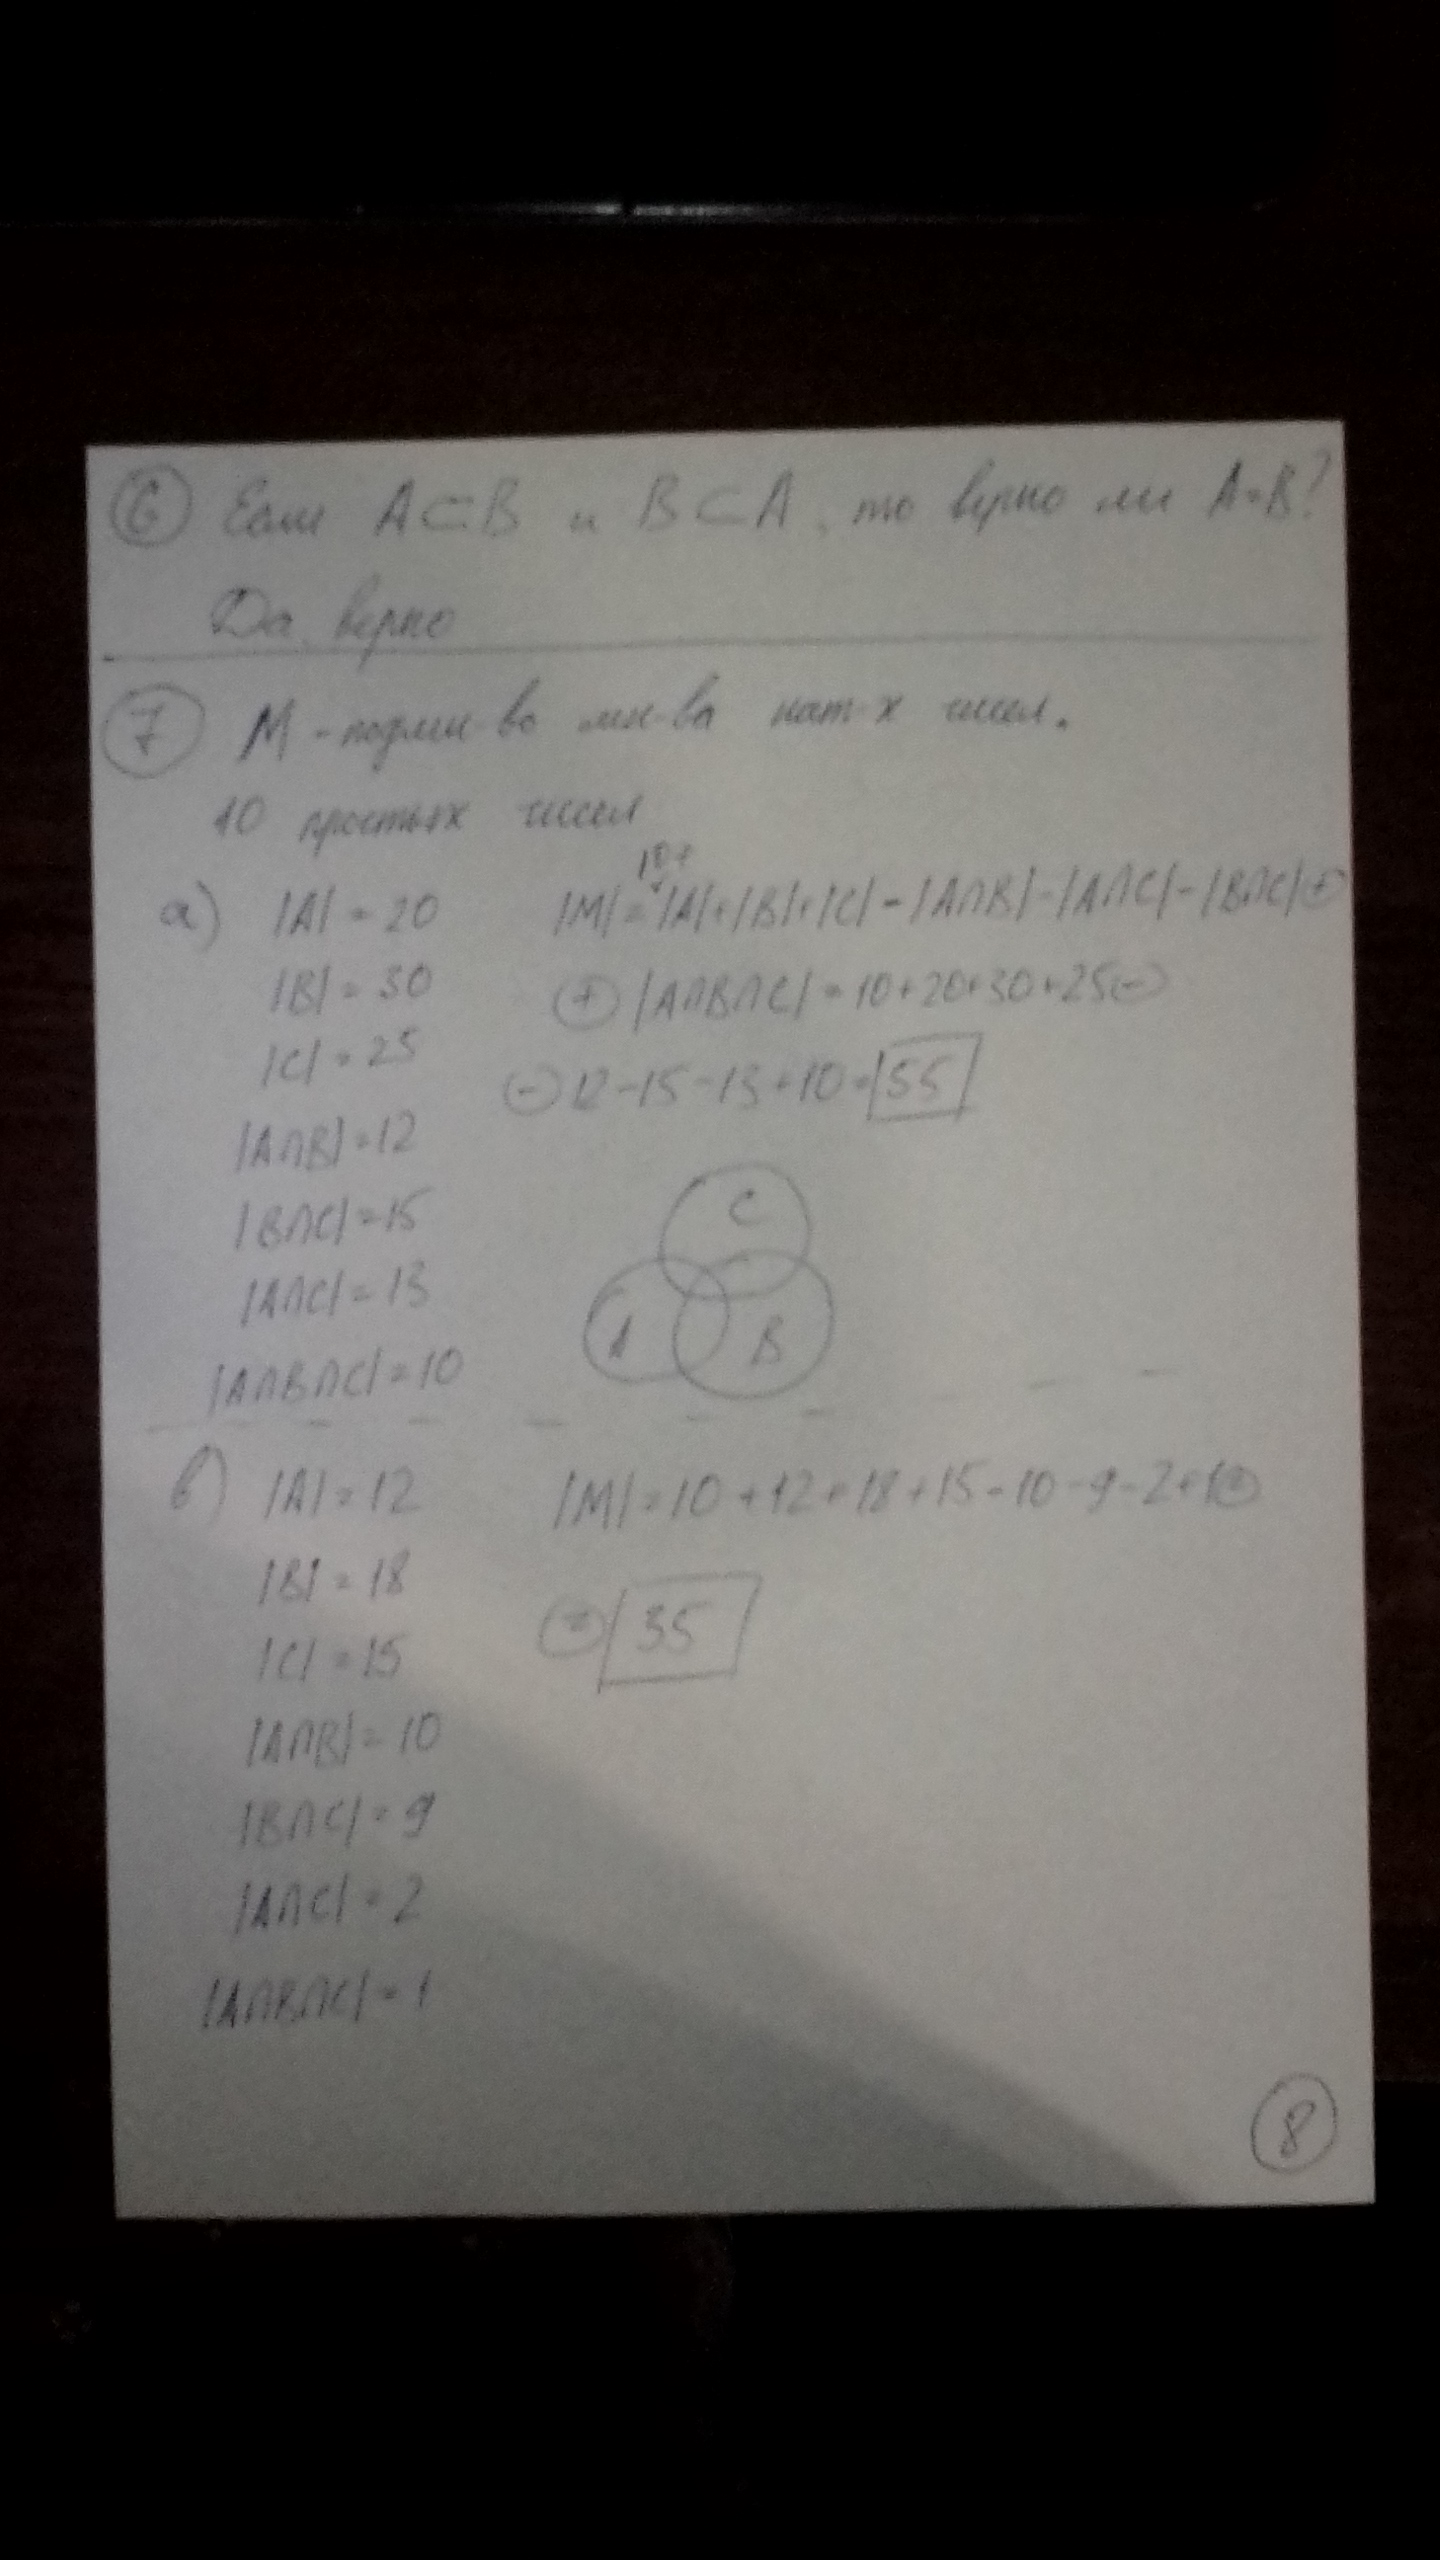 6 Если A⊂B и B⊂A, то верно ли A=B?
Да, верно
7 M - подмн-во мн-ва нат-х чисел.
10 простых чисел
а) |A| = 20
|B| = 30
|C| = 25
|A∩B| = 12
|B∩C| = 15
|A∩C| = 13
|A∩B∩C| = 10
10+
|M| = |A|+|B|+|C| - |A∩B| - |A∩C| - |B∩C| ⊕
⊕ |A∩B∩C| = 10+20+30+25 ⊖
⊖ 12-15-13+10 = 55
C
A B
в) |A| = 12
|B| = 18
|C| = 15
|A∩B| = 10
|B∩C| = 9
|A∩C| = 2
|A∩B∩C| = 1
|M| = 10+12+18+15-10-9-2+1 ⊜
⊜ 35
8